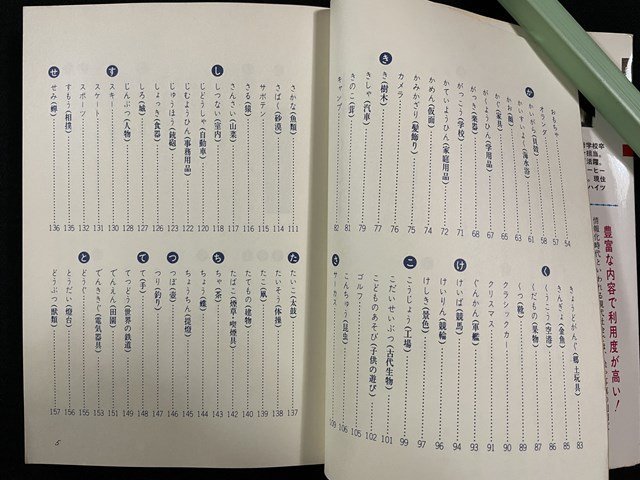 おもちゃ 54
オランダ 57
か
かいがら(貝殻) 58
かいすいよく(海水浴) 61
かお(顔) 63
かぐ(家具) 64
がくようひん(学用品) 67
がっき(楽器) 68
がっこう(学校) 71
かていようひん(家庭用品) 72
かめん(仮面) 74
かみかざり(髪飾り) 75
カメラ 76
き
き(樹木) 77
きしゃ(汽車) 79
きのこ(茸) 81
キャンプ 82
きょうどがんぐ(郷土玩具) 83
きんぎょ(金魚) 85
く
くうこう(空港) 86
くだもの(果物) 87
くつ(靴) 89
クラシックカー 90
クリスマス 91
ぐんかん(軍艦) 93
け
けいば(競馬) 94
けいりん(競輪) 96
けしき(景色) 97
こ
こうじょう(工場) 99
こだいせいぶつ(古代生物) 101
こどものあそび(子供の遊び) 102
ゴルフ 105
こんちゅう(昆虫) 106
さ
サーカス 109
さかな(魚類) 111
さばく(砂漠) 114
サボテン 115
さる(猿) 116
さんさい(山菜) 117
し
しつない(室内) 118
じどうしゃ(自動車) 120
じむようひん(事務用品) 122
じゅうほう(銃砲) 123
しょっき(食器) 125
しろ(城) 126
じんぶつ(人物) 128
す
スキー 130
スケート 131
スポーツ 132
すもう(相撲) 135
せ
せみ(蝉) 136
た
たいこ(太鼓) 137
たいそう(体操) 138
たこ(凧) 139
たてもの(建物) 140
たばこ(煙草・喫煙具) 142
ち
ちゃ(茶) 143
ちょう(蝶) 144
ちょうちん(提燈) 145
つ
つぼ(壺) 146
つり(釣り) 147
て
て(手) 148
てつどう(世界の鉄道) 149
でんえん(田園) 151
でんききぐ(電気器具) 153
と
どうぐ 155
とうだい(燈台) 156
どうぶつ(獣類) 157
5
豊富な内容で利用度が高い!